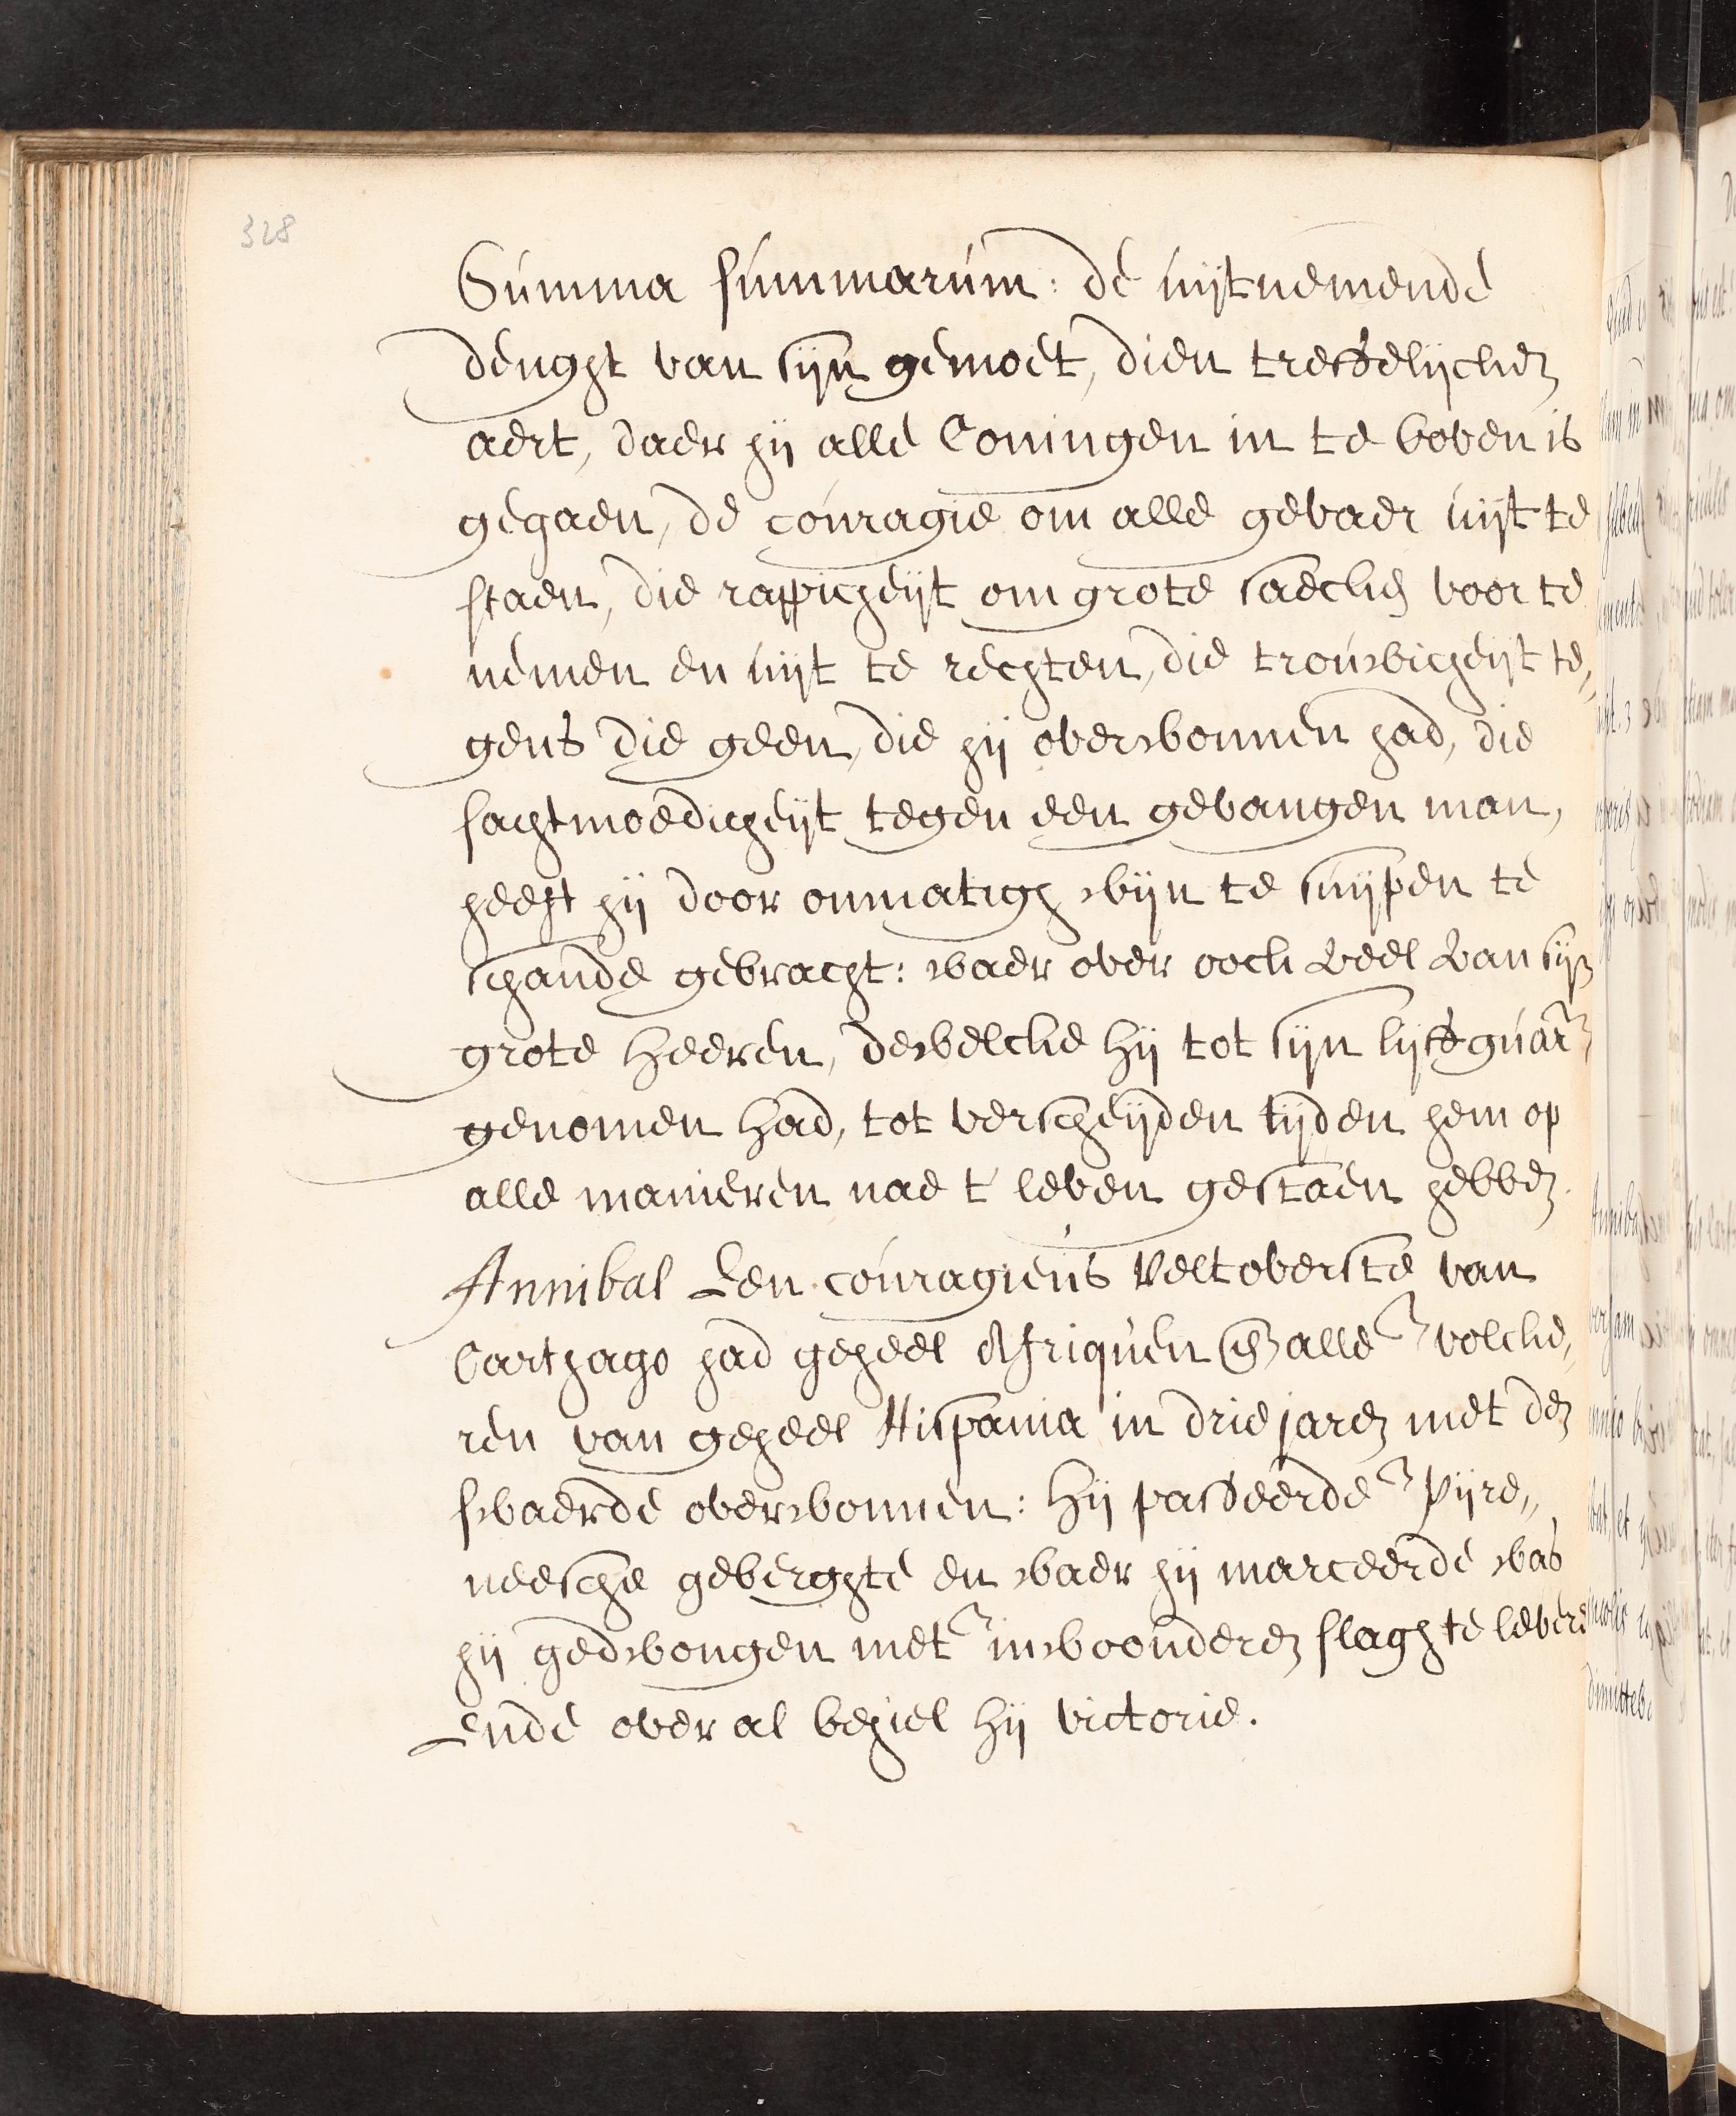 328
Summa summarum: de uijtnemende
deught van sijn gemoet, dien treffelijcken
aert, daer hij alle Coningen in te boven is
gegaen, de couragie om alle gevaer uijt te
staen, die rappicheijt om grote saecken voor te
nemen en uijt te rechten, die trouwicheijt te„
gens die geen, die hij overwonnen had, die
sachtmoedicheijt tegen een gevangen man,
heeft hij door onmatigh wijn te suijpen te
schande gebracht: waer over oock veel van sijn
grote Heeren, dewelcke hij tot sijn lijfguar
genomen had, tot verscheijden tijden hem op
alle manieren nae t' leven gestaen hebben.
Annibal Een couragieus Veltoverste van
Carthago had geheel Afriquen en alle volcke„
ren van geheel Hispania in drie jaren met den
swaerde overwonnen: Hij passeerde Pijre„
neesche geberghte en waer hij marceerde was
hij gedwongen met inwoonderen slagh te leveren
Ende over al behiel hij victorie.